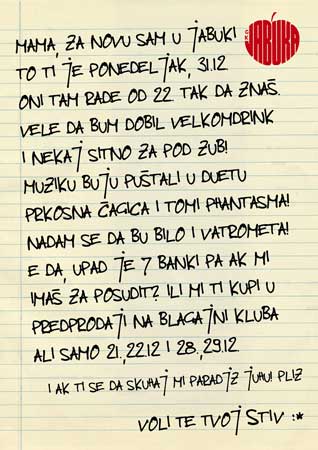 MAMA, ZA NOVU SAM U JABUKI
SKC JABUKA
TO TI JE PONEDELJAK, 31.12
ONI TAM RADE OD 22. TAK DA ZNAŠ.
VELE DA BUM DOBIL VELKOMDRINK
I NEKAJ SITNO ZA POD ZUB!
MUZIKU BUJU PUŠTALI U DUETU
PRKOSNA ČAGICA I TOMI PHANTASMA!
NADAM SE DA BU BILO I VATROMETA!
E DA, UPAD JE 7 BANKI PA AK MI
IMAŠ ZA POSUDIT? ILI MI TI KUPI U
PREDPRODAJI NA BLAGAJNI KLUBA
ALI SAMO 21.,22.12 I 28.,29.12.
I AK TI SE DA SKUHAJ MI PARADJZ JUHU! PLIZ
VOLI TE TVOJ STIV :*